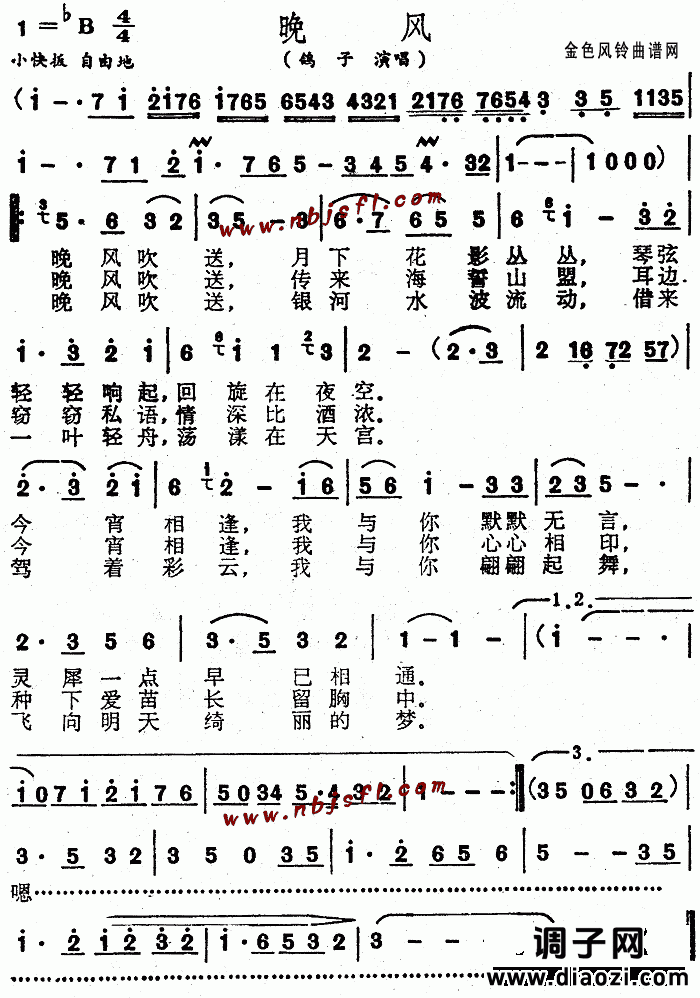 1=♭B 4/4
晚 风
小快扳 自由地
(鸽子 演唱)
金色风铃曲谱网
(i - · 7i 2176 1765 6543 4321 2176 7654 3 35 1135
i - · 71 2 i · 765 - 345 4 · 32 1 - - - 1000)
5 · 6 32 35 - 3 6 · 7 65 5 6 i · 32
www.nbjsfl.com
晚风吹 送, 月下 花 影丛丛, 琴弦
晚风吹 送, 传来 海 誓山盟, 耳边
晚风吹 送, 银河 水 波流动, 借来
i · 3 2 i 6 i 1 3 2 - (2 · 3 2 16 72 57)
轻 轻响起,回 旋在 夜空。
窃 窃私语,情 深比 酒浓。
一 叶轻舟,荡 漾在 天宫。
2 · 3 2i 6 2 - i6 56 i - 33 235 -
今 宵 相 逢, 我 与 你 默默无 言,
今 宵 相 逢, 我 与 你 心心相 印,
驾 着 彩 云, 我 与 你 翩翩起 舞,
1.2.
2 · 3 5 6 3 · 5 3 2 1 - 1 - (i - - ·
灵 犀一点 早 已相 通。
种 下爱苗 长 留胸 中。
飞 向明天 绮 丽的 梦。
3.
i07i 2i76 5034 5 · 432 1 - - - : (35 0632)
www.nbjsfl.com
3 · 5 32 3 5 0 35 i · 2 65 6 5 - - 35
嗯
i · 2 i2 32 i · 6532 3 - -
调子网
www.diaozi.com